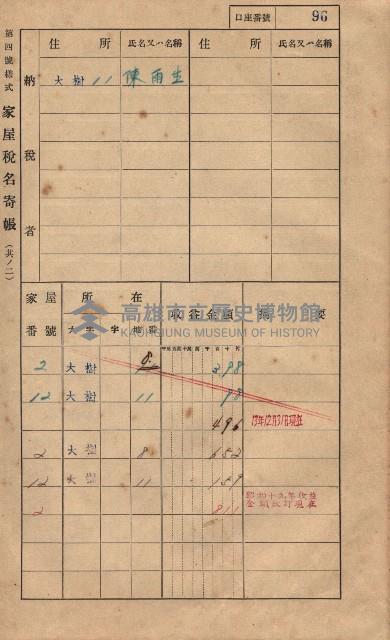 口座番號 96
第四號樣式 家屋稅名寄帳 (其ノ二)
住所 氏名又ハ名稱 住所 氏名又ハ名稱
納稅者
大樹 11 陳雨生
家屋番號 所在 收益金額 摘要
大字 字 地番
高雄市立歷史博物館
KAOHSIUNG MUSEUM OF HISTORY
2 大樹 8
12 大樹 11 98
496 13年12月31日現在
2 大樹 8 652
12 大樹 11 159
2 811 昭和十九年收益金額改訂現在